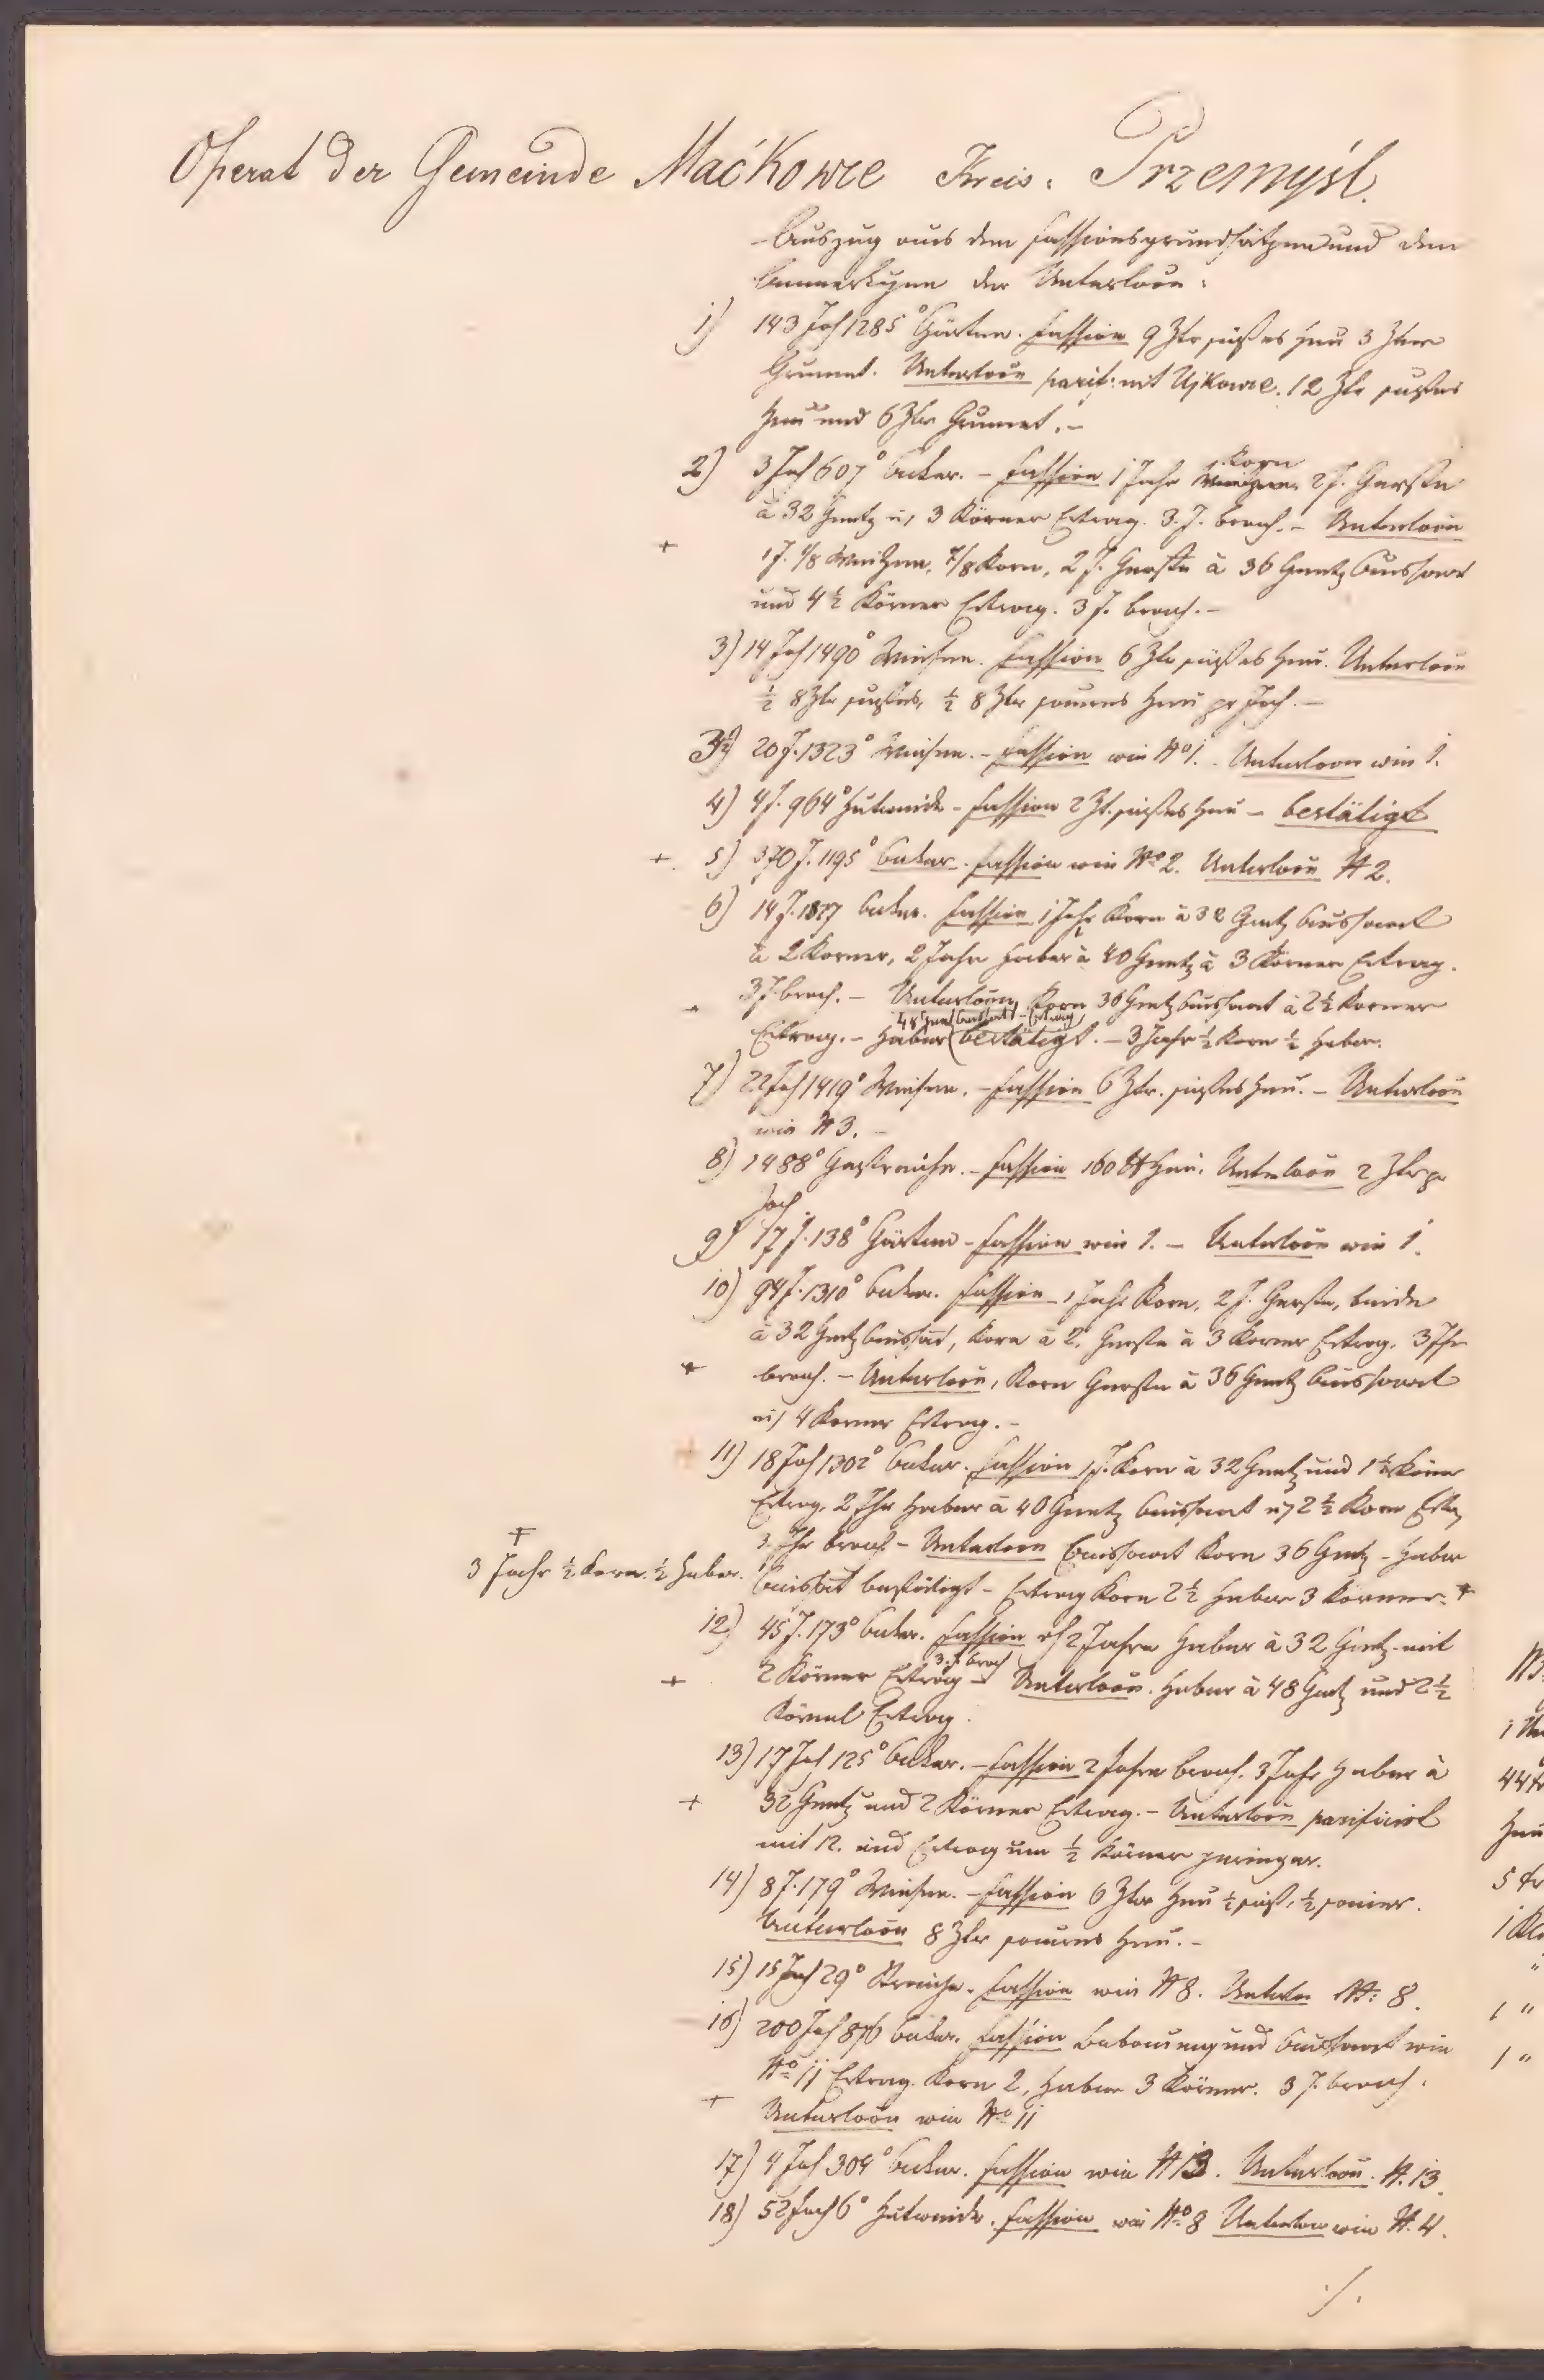 Operat der Gemeinde Maćkowce Kreis: Przemyśl.
Auszug aus den Fassionsgrundsätzen und den
Bemerkungen der Unterloou:
1) 143 Joch 1285° Gärten. Fassion 9 Ztr süßes Heu 3 Ztner
Grumet. Unterloou parif: mit Ujkowce. 12 Ztr süßes
Heu und 6 Ztr Grumet.–
2) 3 Joch 607° Acker. – Fassion 1 Jahr Korn 2 J. Gerste
à 32 Gartz u, 3 Körner Ertrag. 3. J. brach. – Unterloou
+ 1 J. 1/8 Weitzen, 7/8 Korn, 2 J. Gerste à 36 Garntz Aussaat
und 4 ½ Körner Ertrag. 3 J. brach.–
3) 14 Joch 1490° Wiesen. Fassion 6 Ztr süßes Heu. Unterloou
½ 8 Ztr süßes, ½ 8 Ztr saueres Heu pr Joch.–
3½) 20 J. 1323° Wiesen. – Fassion wie No 1. Unterloou wie 1.
4) 4 J. 964° Hutweide – Fassion 2 Zt. süßes Heu – bestätigt
+ 5) 370 J. 1195° Acker. Fassion wie No 2. Unterloou N 2.
6) 14 J. Acker. Fassion 1 Jahr Korn à 32 Gartz Aussaat
à 2 Korner, 2 Jahre Haber à 40 Garntz à 3 Körner Ertrag.
3 J. brach. – Unterloou, Korn 36 Gartz Aussaat à 2½ Korner
48 Garntz Aussaat – Ertrag
Ertrag. – Haber (bestätigt. – 3 Jahr ½ Korn ½ Haber.
7) 22 Joch 1419° Wiesen. – Fassion 6 Ztr. süßes Heu. – Unterloou
wie N 3. –
8) 1488° Gesträuche. – Fassion 160 ℔ Heu. Unterloou 2 Ztr pr
Joch
9) 17 J. 138° Gärten – Fassion wie 1. – Unterloou wie 1.
10) 94 J. 1310° Acker. Fassion 1 Jahr Korn, 2 J. Gerste, beide
à 32 Gartz Aussaat, Korn à 2, Gerste à 3 Korner Ertrag. 3 Jhr
+ brach. – Unterloou, Korn Gerste à 36 Garntz Aussaat
u, 4 Korner Ertrag.–
11) 18 Joch 1302° Acker. Fassion 1 J. Korn à 32 Garntz und 1½ Körner
Ertrag, 2 Jhr Haber à 40 Garntz Aussaat u, 2½ Korn Ertrg
3 Jhr brach – Unterloou Aussaat Korn 36 Gartz – Haber
+
3 Jahr ½ Korn. ½ Haber.
Aussaat bestätigt – Ertrag Korn 2½ Haber 3 Körner. +
12) 45 J. 173° Acker. Fassion 2 Jahre Haber à 32 Gartz mit
3. J. brach
+ 2 Körner Ertrag – Unterloou. Haber à 48 Gartz und 2½
Körner Ertrag.
13) 17 Joch 125° Acker. – Fassion 2 Jahre brach. 3 Jahr Haber à
+ 32 Garntz und 2 Körner Ertrag. – Unterloou parificirt
mit 12. und Ertrag um ½ Körner geringer.
14) 8 J. 179° Wiesen. – Fassion 6 Ztr Heu ½ süß, ½ sauer.
Unterloou 8 Ztr saueres Heu.–
15) 15 Joch 29° Streuche. Fassion wie N 8. N: 8.
16) 200 Joch 876 Acker. Fassion Bebauung und Aussaat wie
No 11 Ertrag. Korn 2, Haber 3 Körner. 3 J. brach.
+ Unterloou wie No 11
17) 4 Joch 304° Acker. Fassion wie N 13. Unterloou. N. 13.
18) 52 Joch 6° Hutweide. Fassion wie No 8 Unterloou wie N. 4.
./.